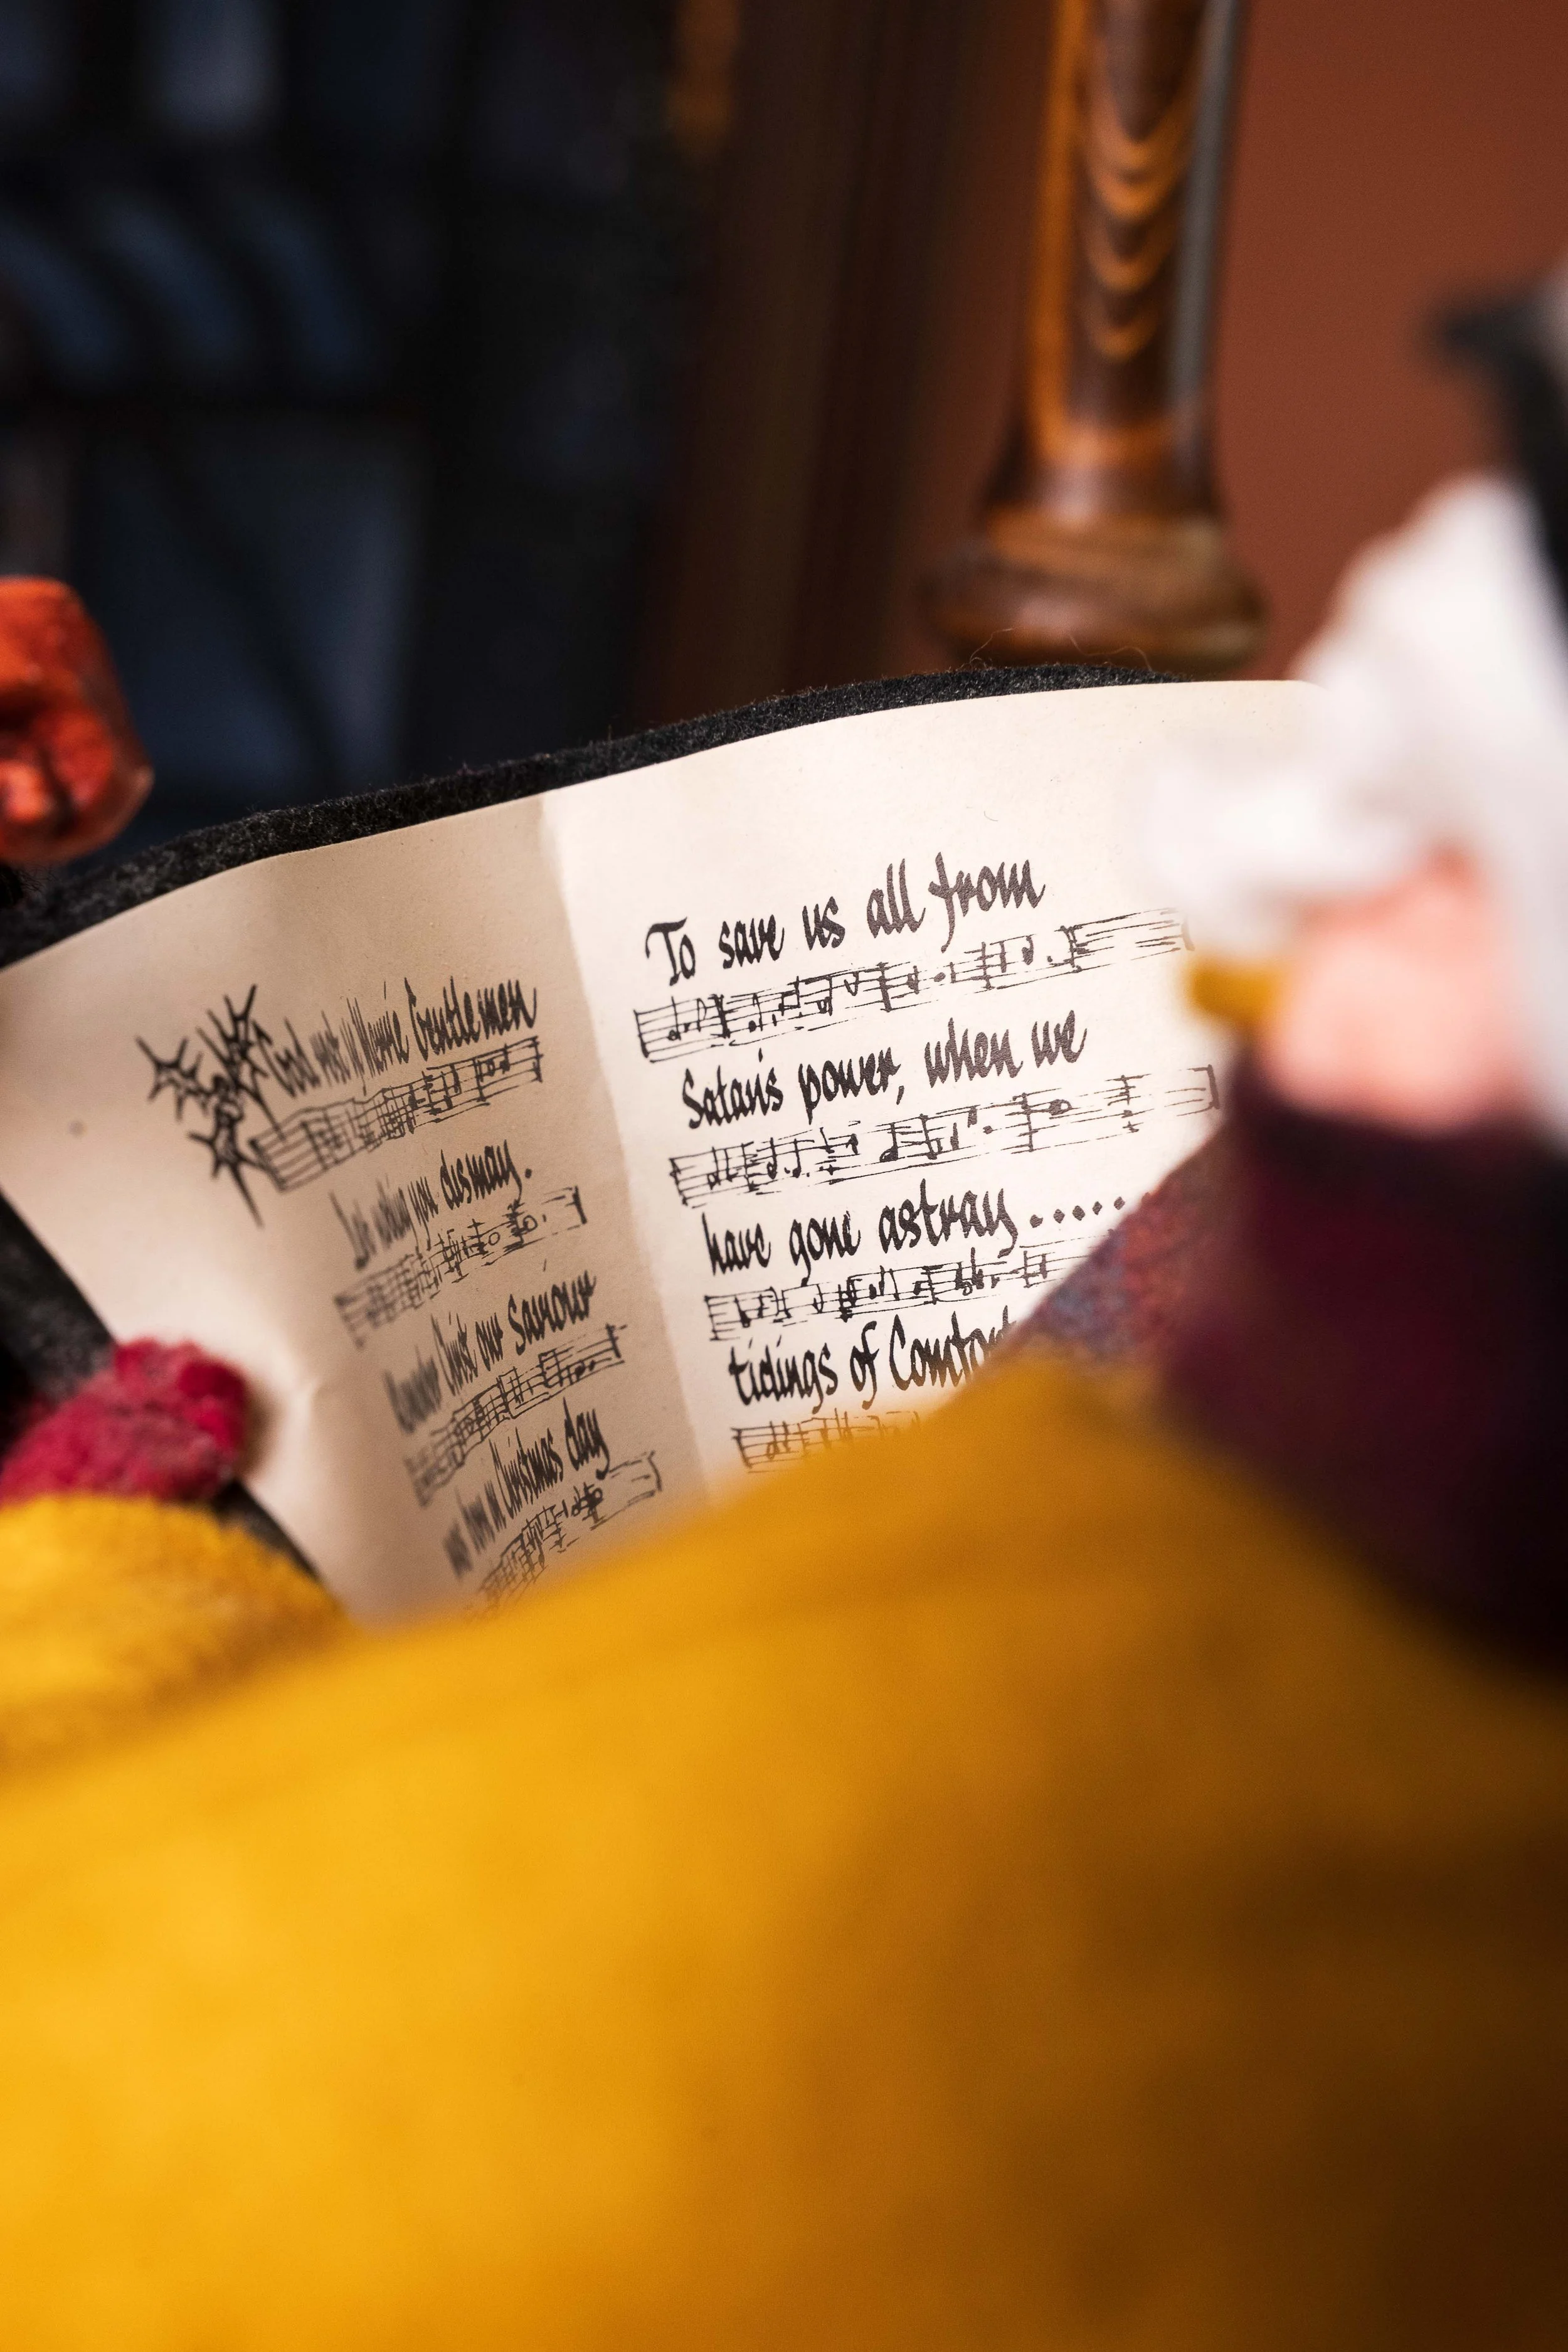 God rest ye Merrie Gentlemen
Let nothing you dismay.
Remember Christ our Saviour
was born on Christmas day
To save us all from
Satan's power, when we
have gone astray.....
tidings of Comfort